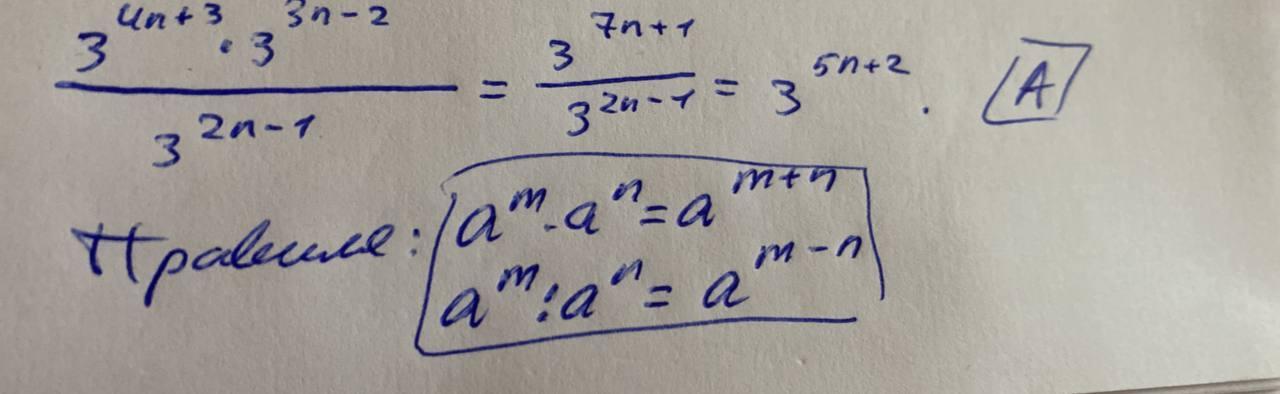 3^{4n+3} · 3^{3n-2} / 3^{2n-1} = 3^{7n+1} / 3^{2n-1} = 3^{5n+2}. A
Правила: a^m · a^n = a^{m+n}
a^m : a^n = a^{m-n}